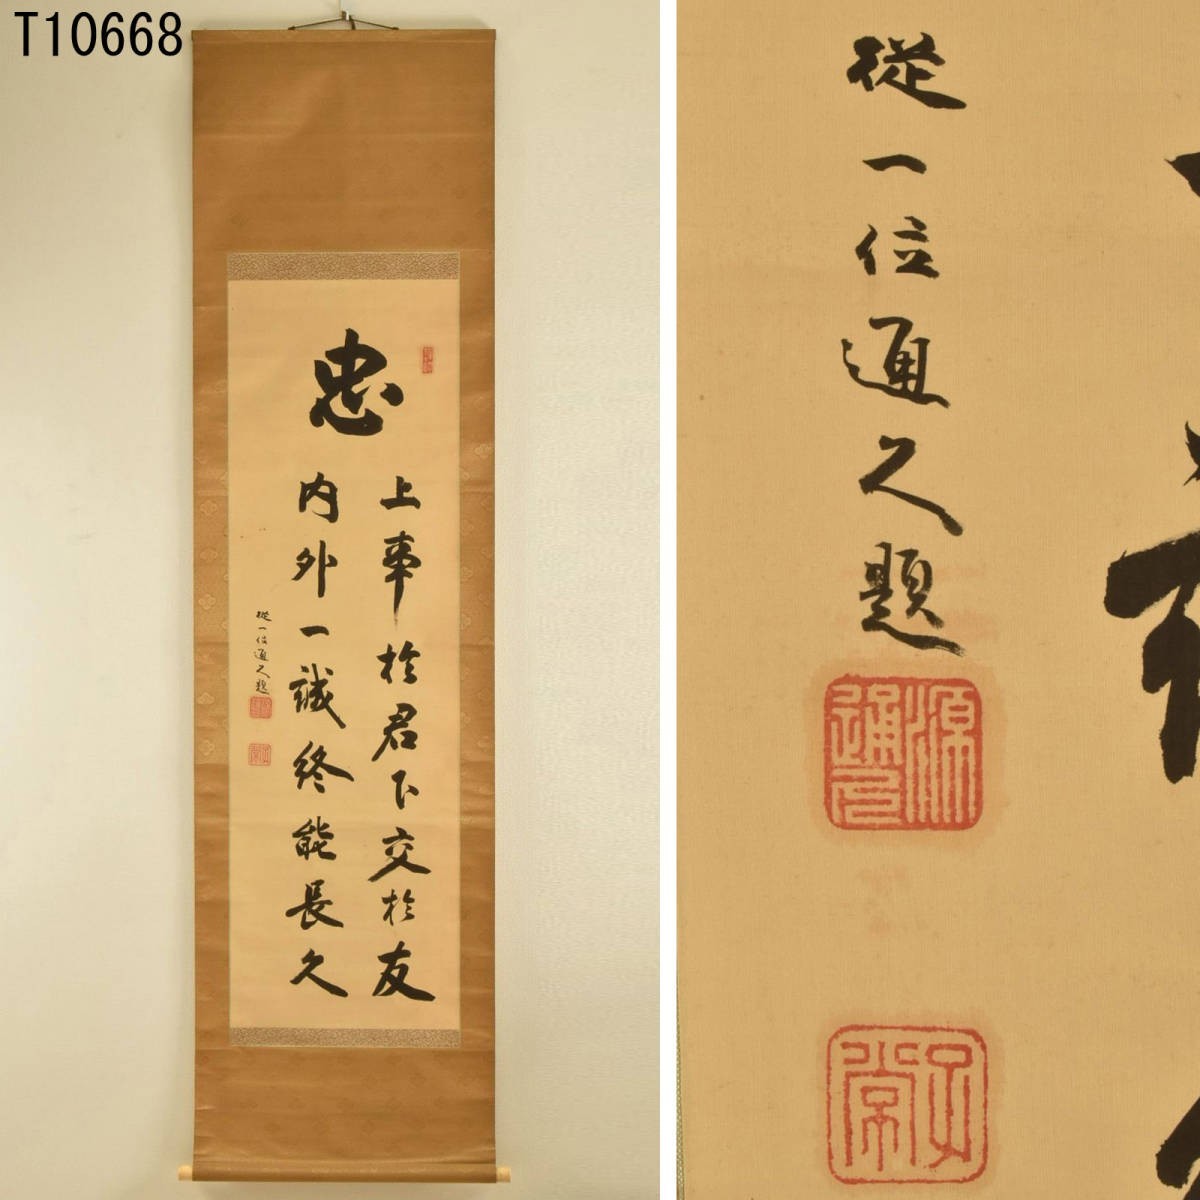 T10668
忠
上事於君下交於友
内外一誠終能長久
從一位通久題
源通久
從一位通久題
源通久